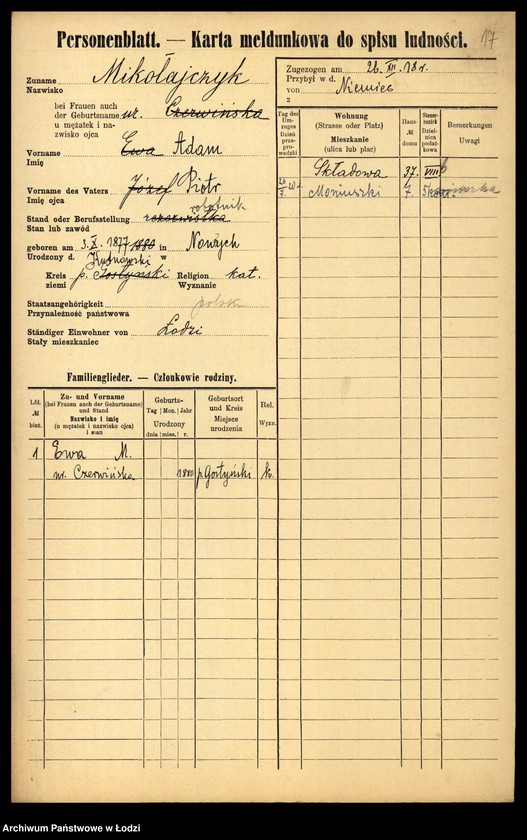 17
Personenblatt. — Karta meldunkowa do spisu ludności.
Zuname Mikołajczyk
Nazwisko
bei Frauen auch
der Geburtsname ur. Czerwińska
u mężatek i na-
zwisko ojca
Vorname Ewa Adam
Imię
Vorname des Vaters Józef Piotr
Imię ojca
robotnik
Stand oder Berufsstellung
Stan lub zawód
geboren am 3.X.1877 1880 in
Urodzony d. Kutnowski w
Kreis p. Gostyński Religion kat.
ziemi Wyznanie
Staatsangehörigkeit polsk
Przynależność państwowa
Ständiger Einwohner von Łodzi
Stały mieszkaniec
Zugezogen am 26.XII.18 r.
Przybył w d.
von Niemiec
z
Tag des Um-zuges
Dzień prze-prowadzki
Wohnung
(Strasse oder Platz)
Mieszkanie
(ulica lub plac)
Haus-
№
domu
Steuer-bezirk
Dziel-nica podat-kowa
Bemerkungen
Uwagi
Składowa 37. VIII b
Moniuszki 7.
Familienglieder. — Członkowie rodziny.
Lfd.
№
bież.
Zu- und Vorname
(bei Frauen auch der Geburtsname)
und Stand
Nazwisko i imię
(u mężatek i nazwisko ojca)
i stan
Geburts-
Tag Mon. Jahr
Urodzony
dnia mies. r.
Geburtsort
und Kreis
Miejsce
urodzenia
Rel.
Wyzn.
1 Ewa M.
ur. Czerwińska 1880 p. Gostyński k.
Archiwum Państwowe w Łodzi